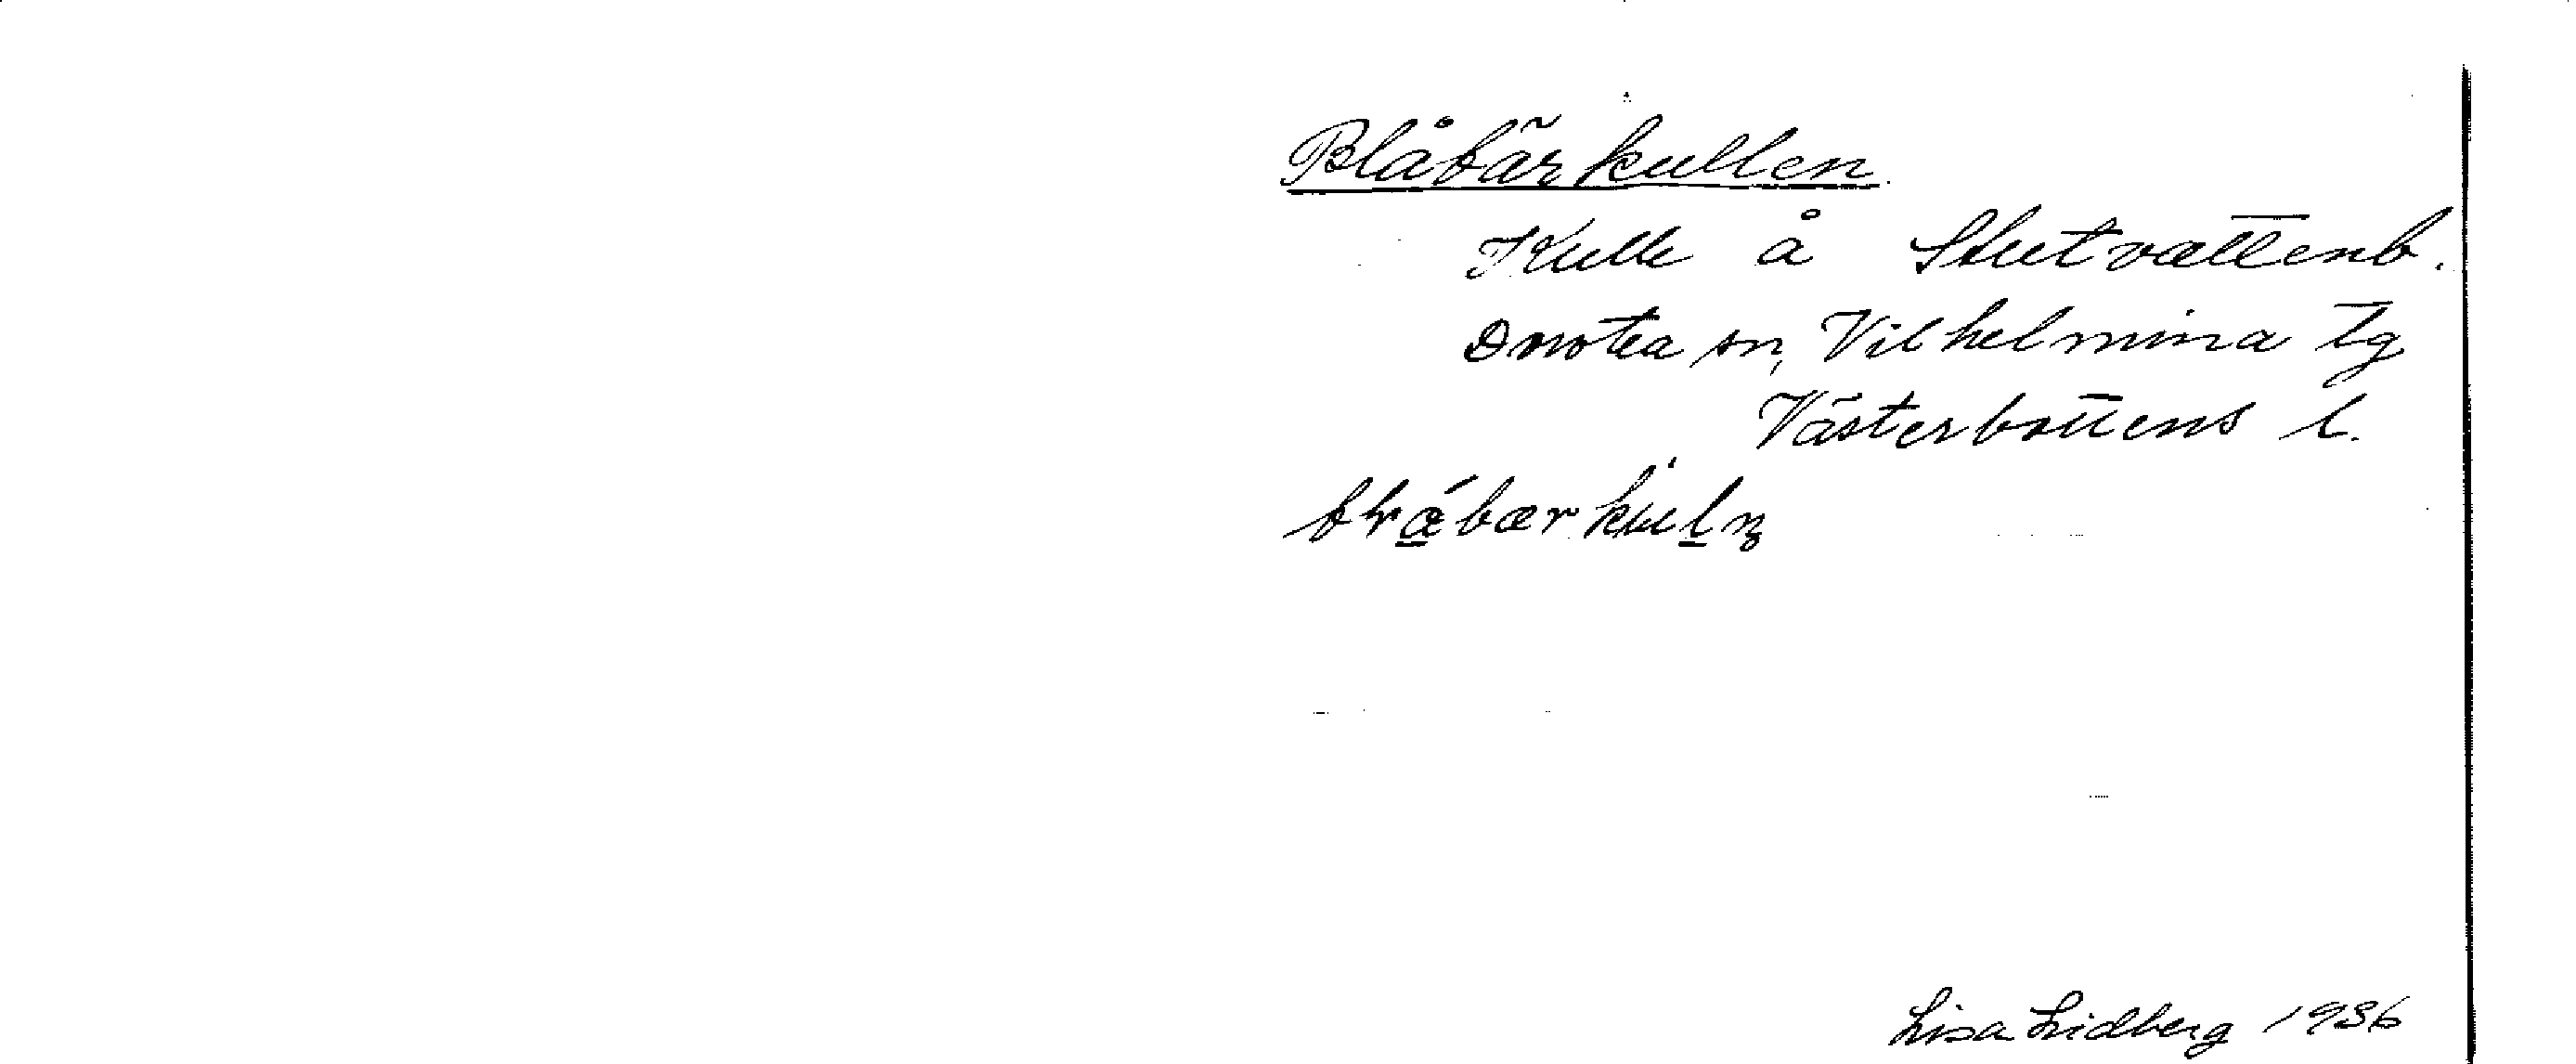 Blåbärkullen
Kulle å Stutvattenb.
Dorotea sn, Vilhelmina tg
Västerbottens l.
Lisa Lidberg 1936